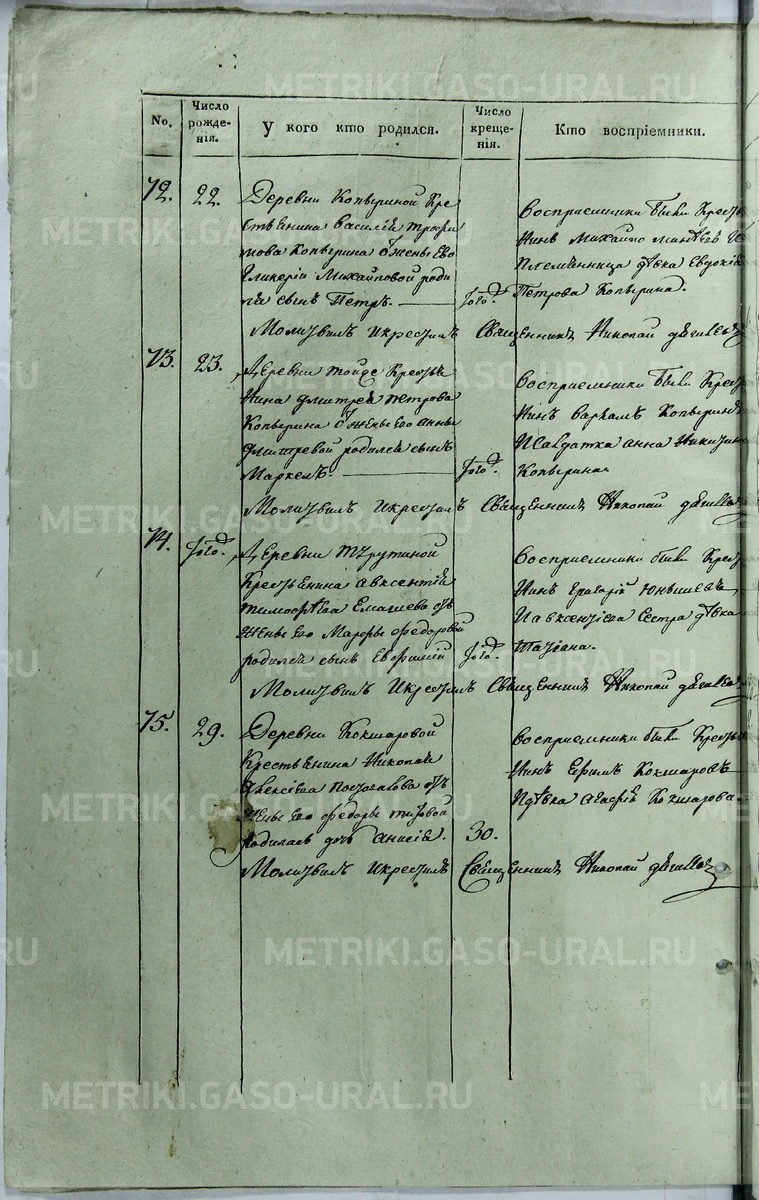 METRIKI.GASO-URAL.RU
No. Число рожденія. У кого кто родился. Число крещенія. Кто воспріемники.
72. 22. Деревни Копыриной Кре
стьянина Василія Трофи
мова Копырина жены его
Гликеріи Михайловой роди
лся сынъ Петръ. тогод.
Восприемники были Кресть
нинъ Михайло
Племянница дѣвка Евдокія
Петрова Копырина.
Молитвилъ и крестилъ Священникъ Николай
73. 23. Деревни тойже Кресть
нина Дмитрея Петрова
Копырина жены его Анны
Дмитревой родился сынъ
Маркелъ. тогод.
Восприемники были Кресть
нинъ Варламъ Копыринъ
и Салдатка Анна Никитина
Копырина.
Молитвилъ и крестилъ Священникъ Николай
74. тогод. Деревни
Крестьянина Авксентія
Тимофѣева отъ
жены его Марфы Федоровой
родился сынъ Евфимій тогод.
Восприемники были Кресть
нинъ Григорій
и Авксентіева сестра дѣвка
Татіана.
Молитвилъ и крестилъ Священникъ Николай
75. 29. Деревни Кокшаровой
Крестьянина Николая
Алексѣева отъ
жены его Федоры Титовой
родилась дочь Анисія. 30.
Восприемники были Кресть
нинъ Ефимъ Кокшаровъ
и дѣвка Агафія Кокшарова.
Молитвилъ и крестилъ Священникъ Николай